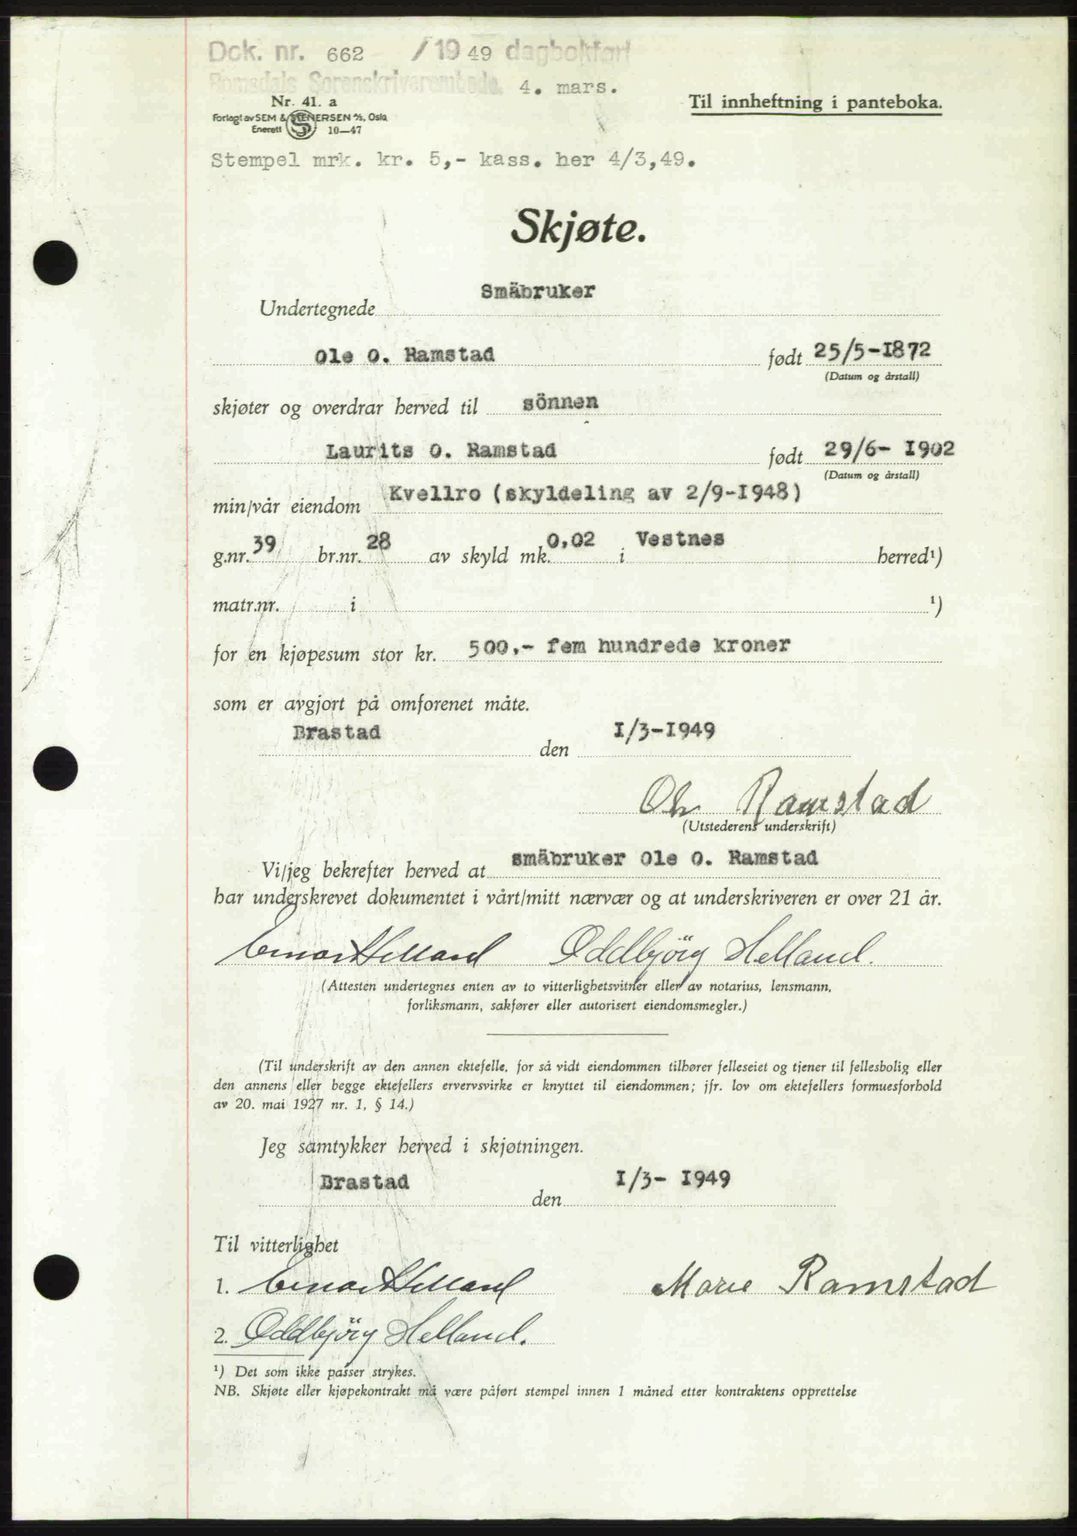 Dok. nr. 662 / 19 49 dagbokført
Romsdals Sorenskriverembede. 4. mars.
Nr. 41. a
Til innheftning i panteboka.
Forlagt av SEM & STENERSEN A/S, Oslo
Enerett S 10—47
Stempel mrk. kr. 5,- kass. her 4/3,49.
Skjøte.
Undertegnede Småbruker
Ole O. Ramstad født 25/5-1872
(Datum og årstall)
skjøter og overdrar herved til sönnen
Laurits O. Ramstad født 29/6- 1902
(Datum og årstall)
min/vår eiendom Kvellro (skyldeling av 2/9-1948)
g.nr. 39 br.nr. 28 av skyld mk. 0,02 i Vestnes herred¹)
matr.nr. i ¹)
for en kjøpesum stor kr. 500,- fem hundrede kroner
som er avgjort på omforenet måte.
Brastad den 1/3-1949
Ole Ramstad
(Utstederens underskrift)
Vi/jeg bekrefter herved at småbruker Ole O. Ramstad
har underskrevet dokumentet i vårt/mitt nærvær og at underskriveren er over 21 år.
Einar Helland Oddbjörg Helland.
(Attesten undertegnes enten av to vitterlighetsvitner eller av notarius, lensmann,
forliksmann, sakfører eller autorisert eiendomsmegler.)
(Til underskrift av den annen ektefelle, for så vidt eiendommen tilhører felleseiet og tjener til fellesbolig eller
den annens eller begge ektefellers ervervsvirke er knyttet til eiendommen; jfr. lov om ektefellers formuesforhold
av 20. mai 1927 nr. 1, § 14.)
Jeg samtykker herved i skjøtningen.
Brastad den 1/3- 1949
Til vitterlighet
1. Einar Helland Marie Ramstad
2. Oddbjörg Helland.
¹) Det som ikke passer strykes.
NB. Skjøte eller kjøpekontrakt må være påført stempel innen 1 måned etter kontraktens opprettelse